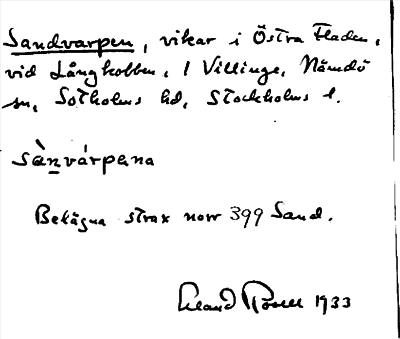 Sandvarpen, vikar i Östra Fladen,
vid Långkobben, 1 Villinge, Nämdö
sn, Sotholms hd, Stockholms l.
sànvárpena
Belägna strax norr 399 Sand.
1933